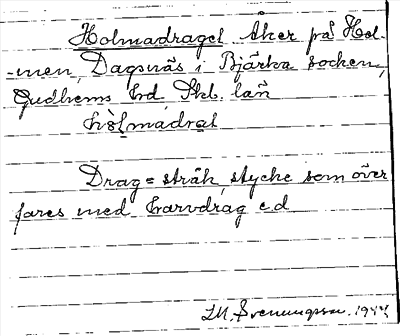 Holmadraget Åker på Hol-
-men, Dagsnäs i Bjärka socken,
Gudhems hd, Skb. län
hòlmadrat
Drag = stråk, stycke som över
fares med harvdrag e.d
Svenungsson. 1944